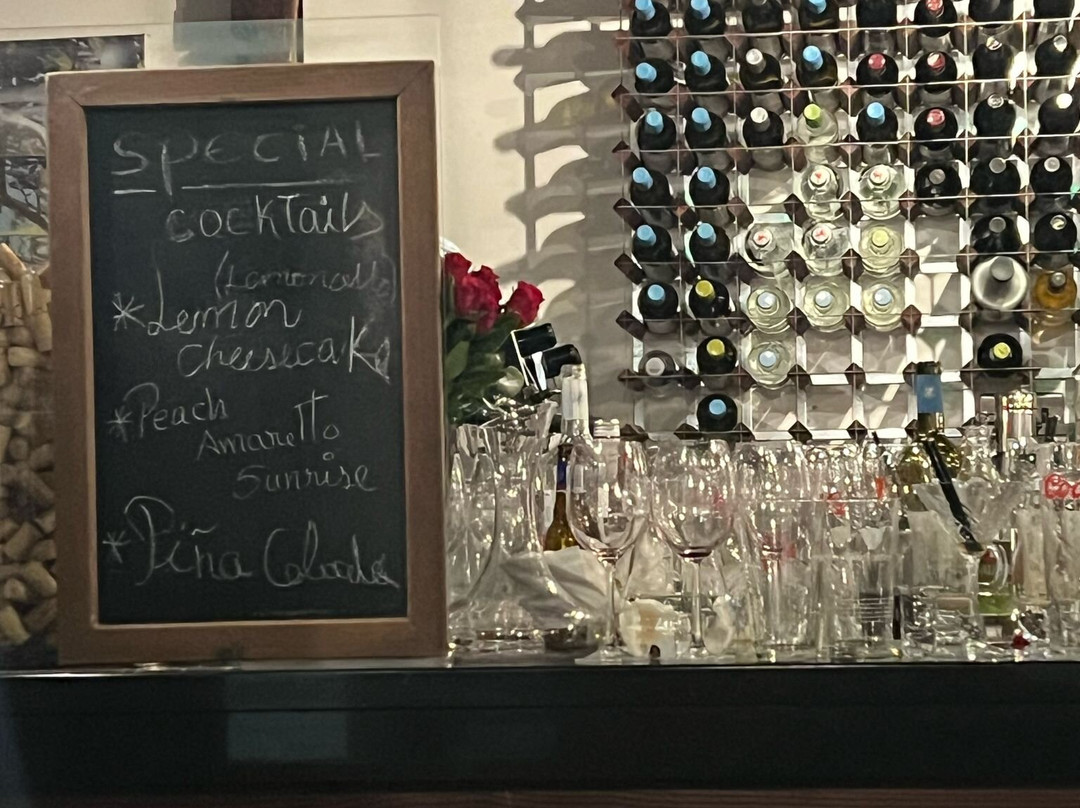 SPECIAL
COCKTails
(Lemoncello)
*Lemon
CheesecaKe
*Peach
Amaretto
Sunrise
*Piña Colada